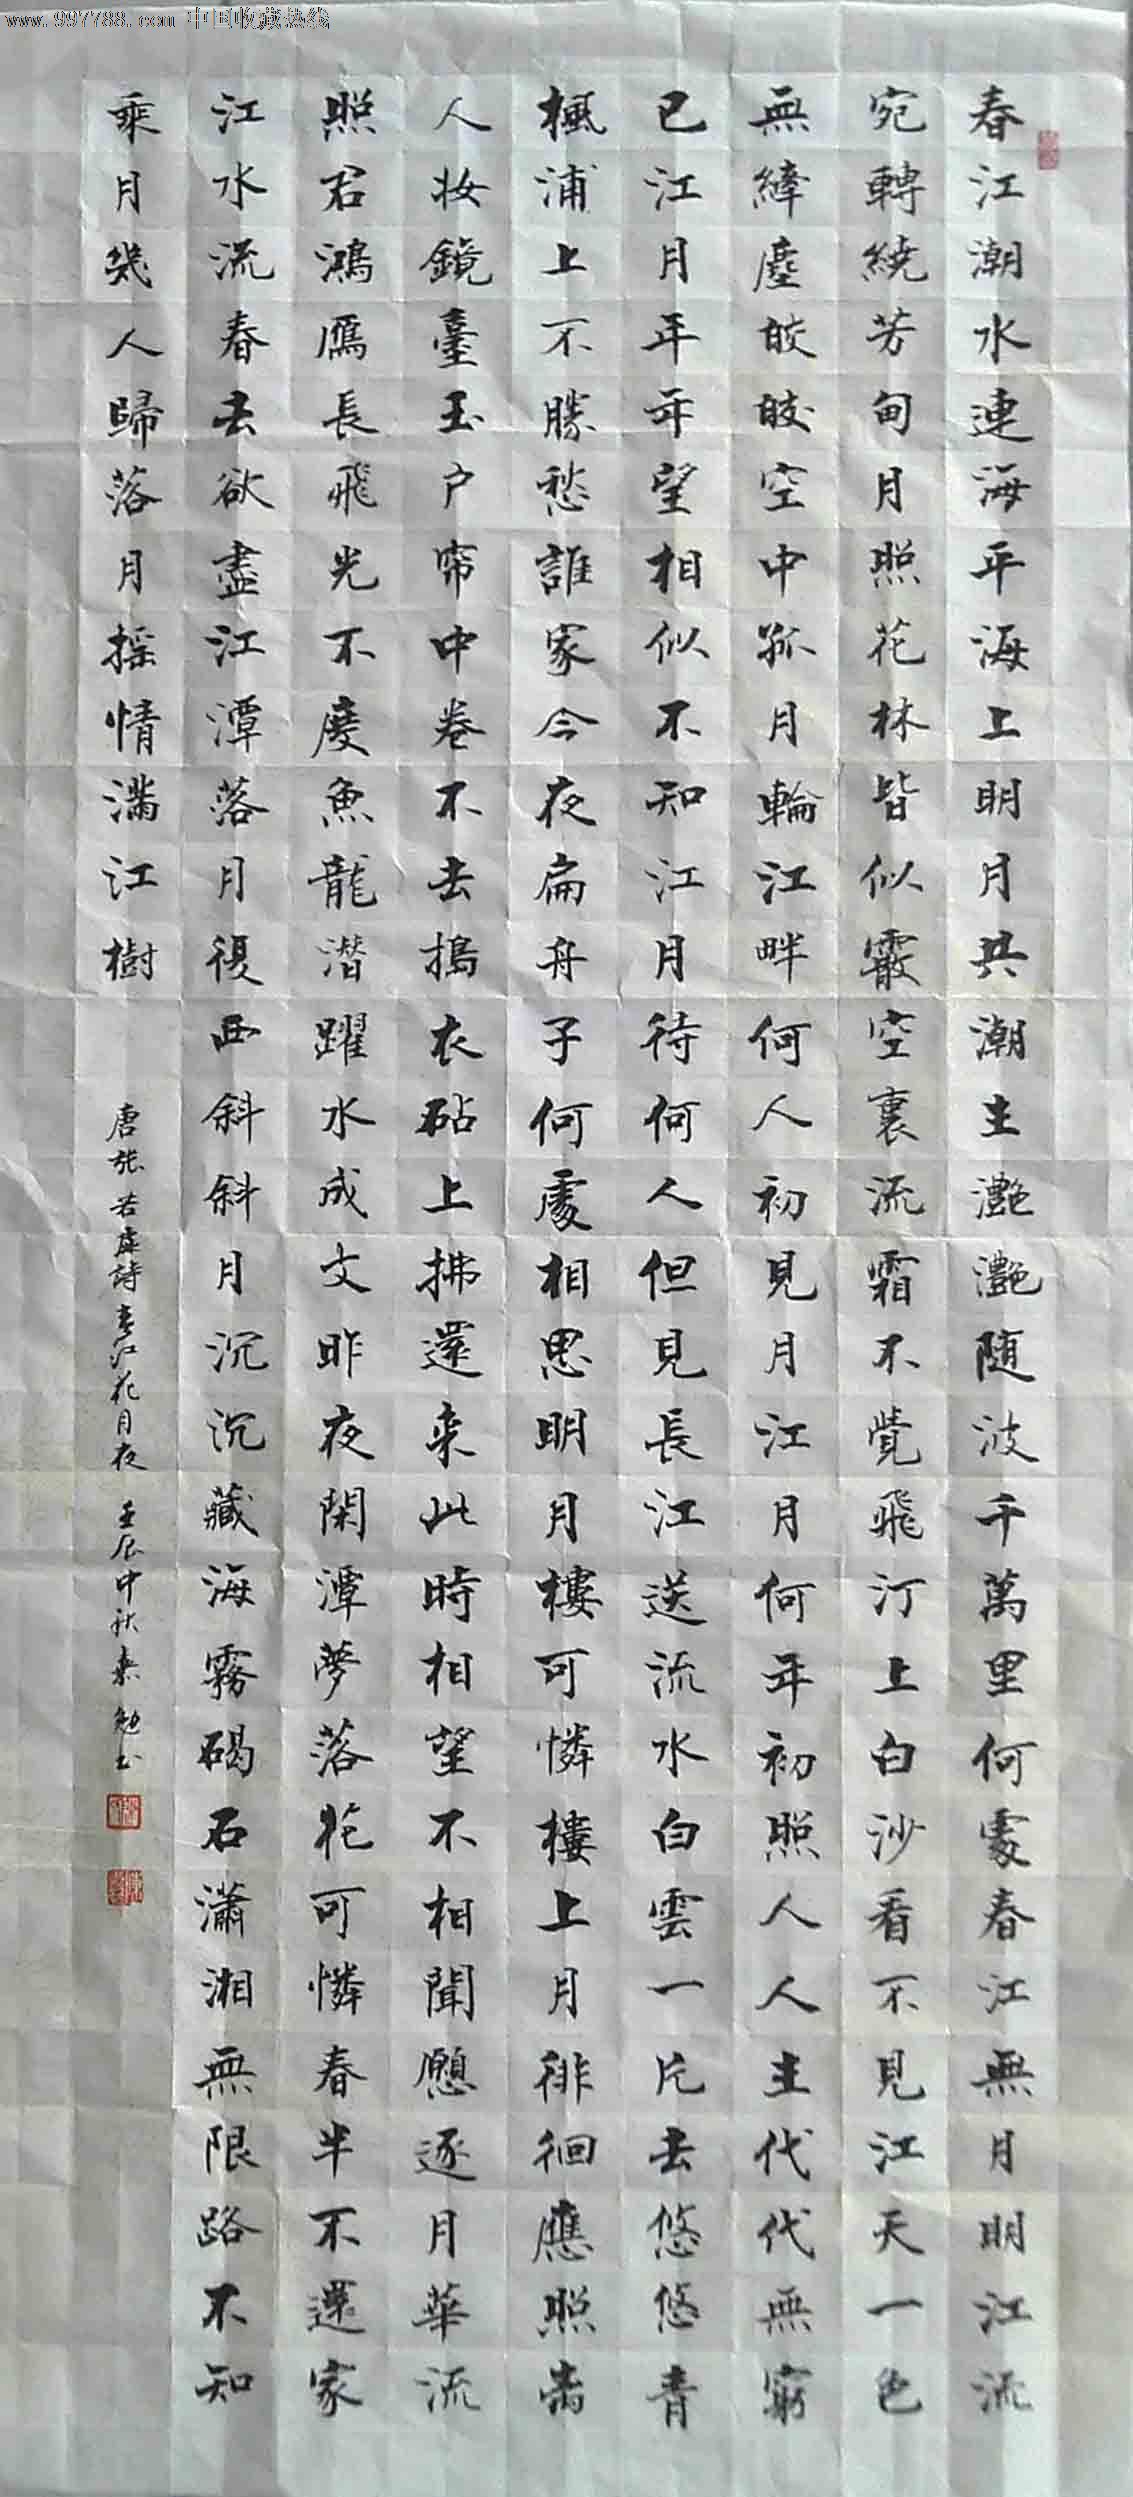 www.997788.com 中国收藏热线
春江潮水連海平海上明月共潮生灧灧随波千萬里何處春江無月明江流
宛轉繞芳甸月照花林皆似霰空裏流霜不覺飛汀上白沙看不見江天一色
無纖塵皎皎空中孤月輪江畔何人初見月江月何年初照人人生代代無窮
已江月年年望相似不知江月待何人但見長江送流水白雲一片去悠悠青
楓浦上不勝愁誰家今夜扁舟子何處相思明月樓可憐樓上月徘徊應照离
人妝鏡臺玉户帘中卷不去搗衣砧上拂還来此時相望不相聞願逐月華流
照君鴻雁長飛光不度魚龍潜躍水成文昨夜閑潭夢落花可憐春半不還家
江水流春去欲盡江潭落月復西斜斜月沉沉藏海霧碣石瀟湘無限路不知
乘月幾人歸落月摇情滿江樹
唐張若虚詩春江花月夜 壬辰中秋 勉书